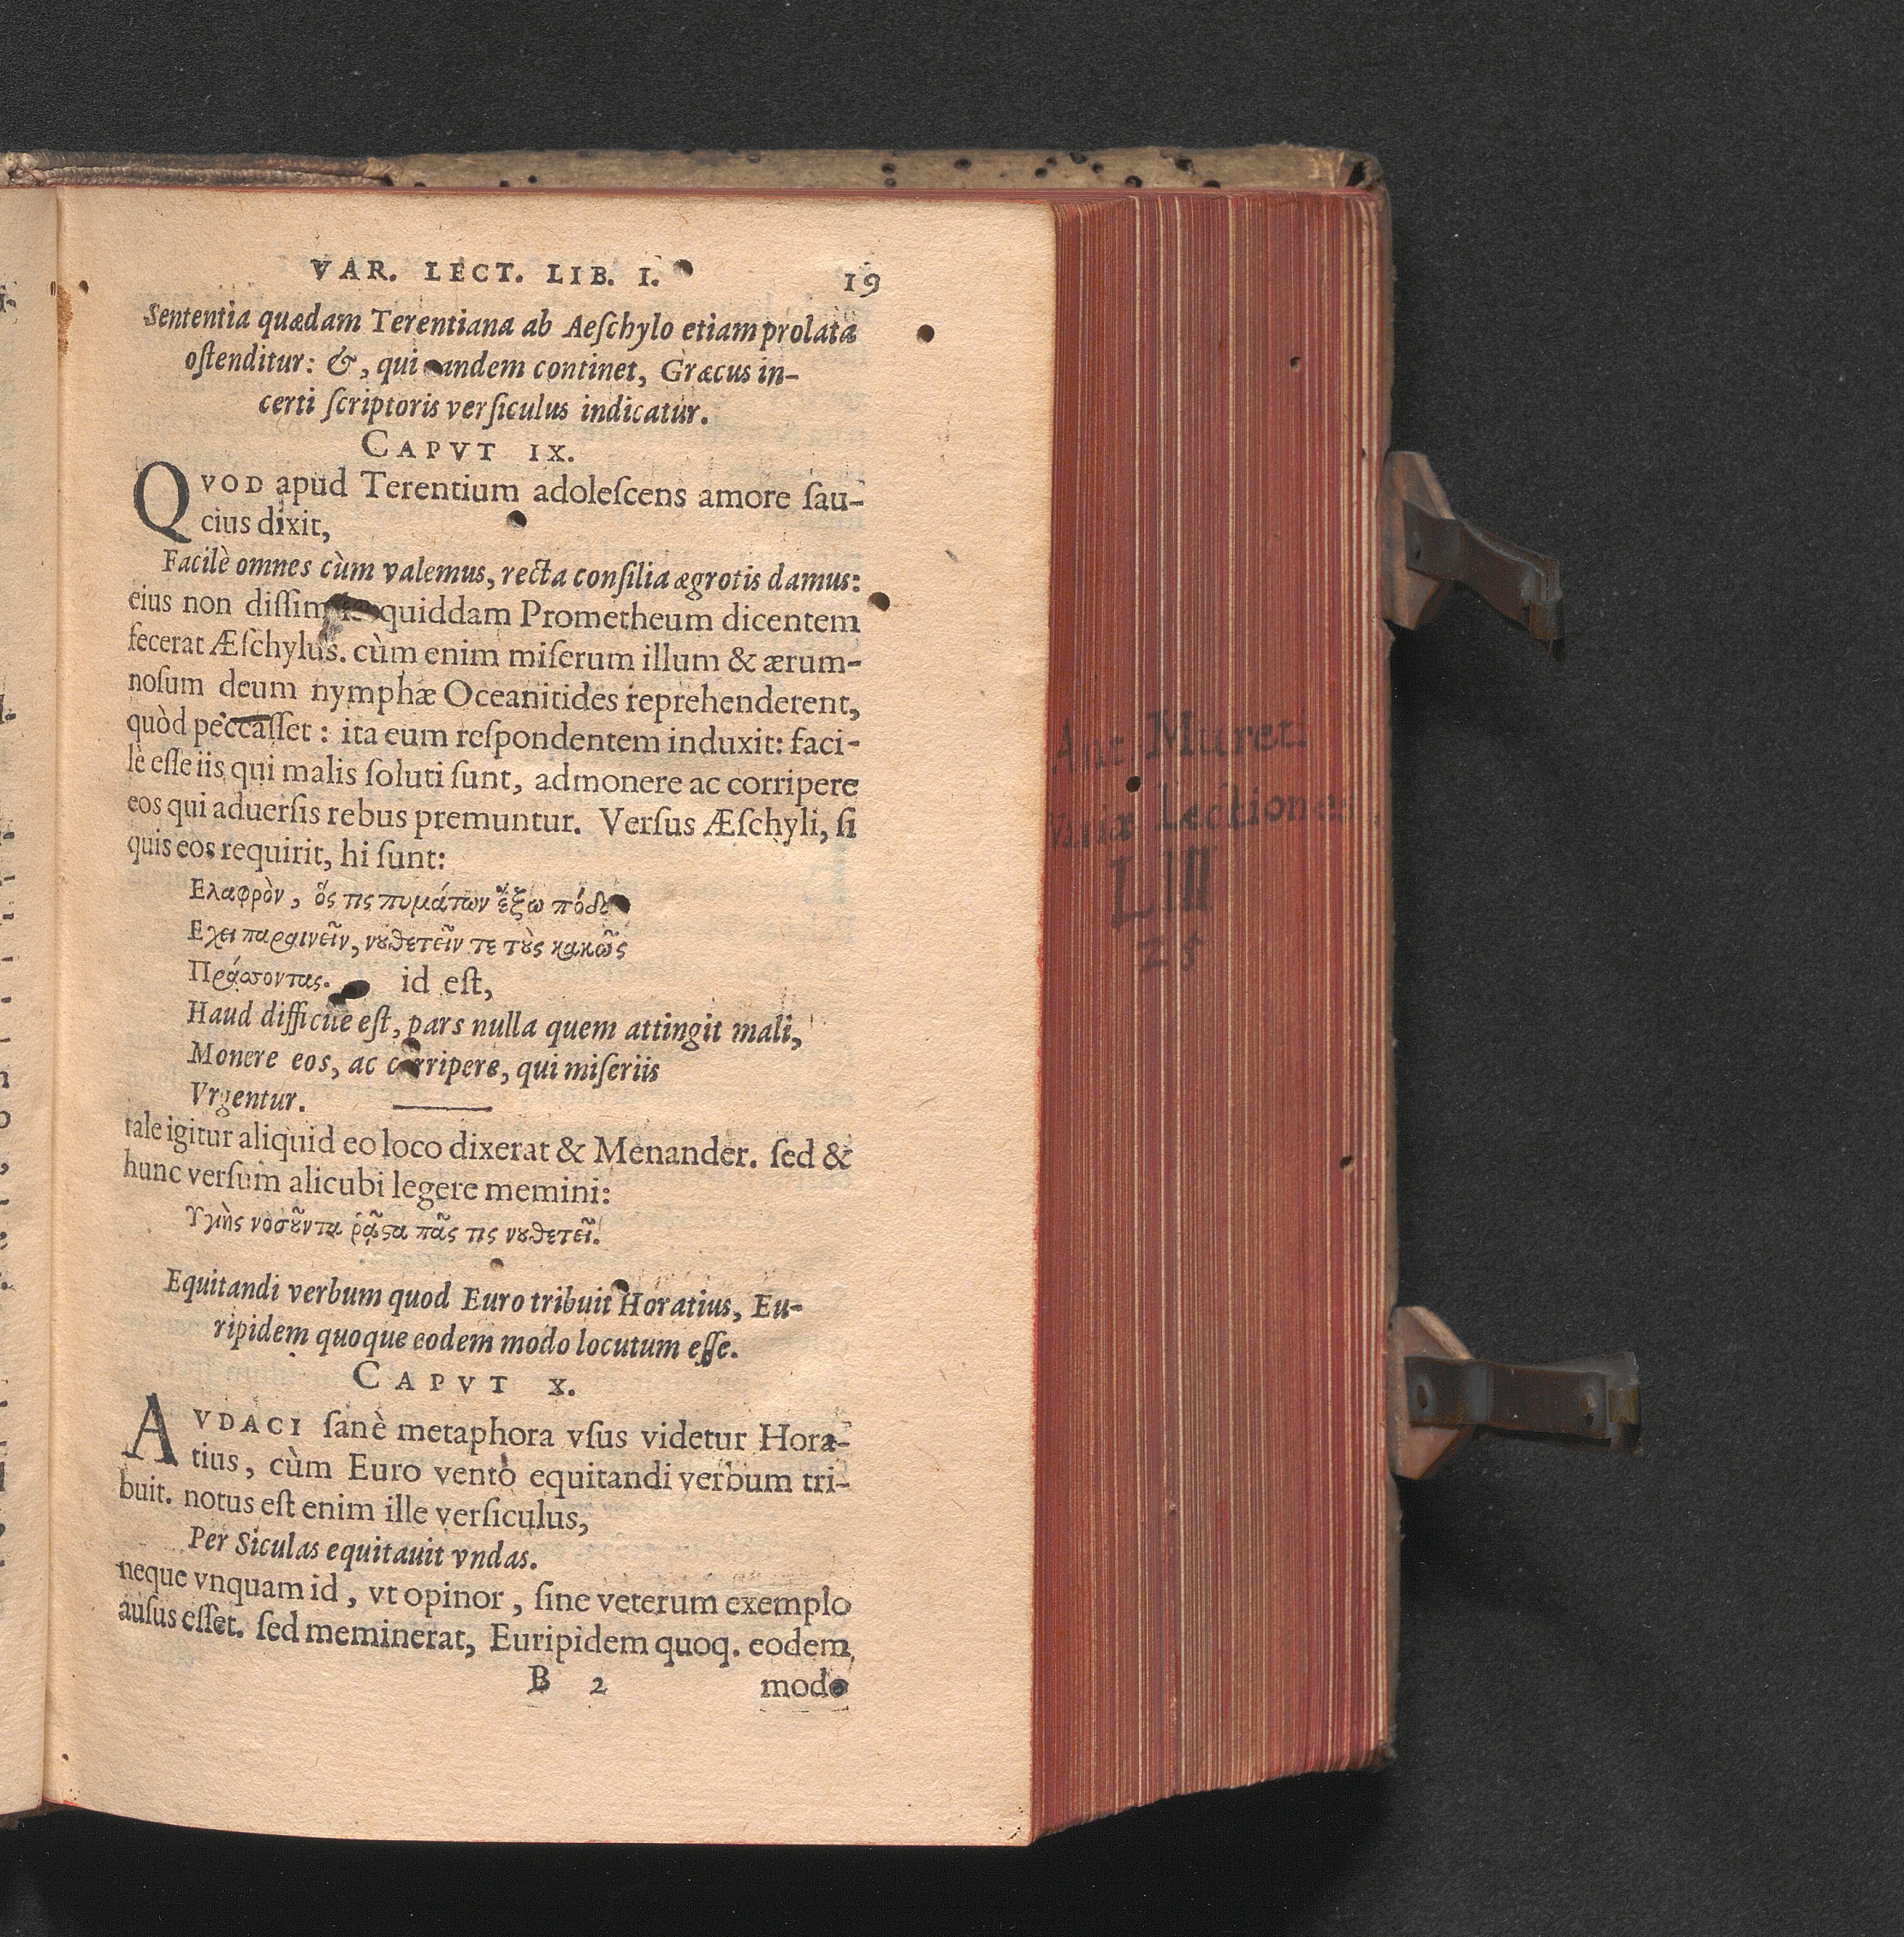 VAR. LECT. LIB. I. 19
Sententia quædam Terentiana ab Aeſchylo etiam prolata
oſtenditur: &, qui andem continet, Græcus in-
certi ſcriptoris verſiculus indicatur.
CAPVT IX.
QVOD apud Terentium adoleſcens amore ſau-
cius dixit,
Facilè omnes cùm valemus, recta conſilia ægrotis damus:
eius non diſſim quiddam Prometheum dicentem
fecerat Æſchylus. cùm enim miſerum illum & ærum-
noſum deum nymphæ Oceanitides reprehenderent,
quòd peccaſſet: ita eum reſpondentem induxit: faci-
lè eſſe iis qui malis ſoluti ſunt, admonere ac corripere
eos qui aduerſis rebus premuntur. Verſus Æſchyli, ſi
quis eos requirit, hi ſunt:
Ελαφρὸν, ὅς τις πυμάτων ἔξω πόδα
Εχει παραινεῖν, νȣθετεῖν τε τȣ̀ς κακῶς
Πράσσοντας. id eſt,
Haud difficile eſt, pars nulla quem attingit mali,
Monere eos, ac corripere, qui miſeriis
Vrgentur.
tale igitur aliquid eo loco dixerat & Menander. ſed &
hunc verſum alicubi legere memini:
Υγιὴς νοσȣ͂ντα ῥᾷϛα πᾶς τις νȣθετεῖ.
Equitandi verbum quod Euro tribuit Horatius, Eu-
ripidem quoque eodem modo locutum eſſe.
CAPVT X.
AVDACI ſanè metaphora vſus videtur Hora-
tius, cùm Euro vento equitandi verbum tri-
buit. notus eſt enim ille verſiculus,
Per Siculas equitauit vndas.
neque vnquam id, vt opinor, ſine veterum exemplo
auſus eſſet. ſed meminerat, Euripidem quoq. eodem
B 2 modo
Ant Mureti
Variæ Lectiones
LIII
25